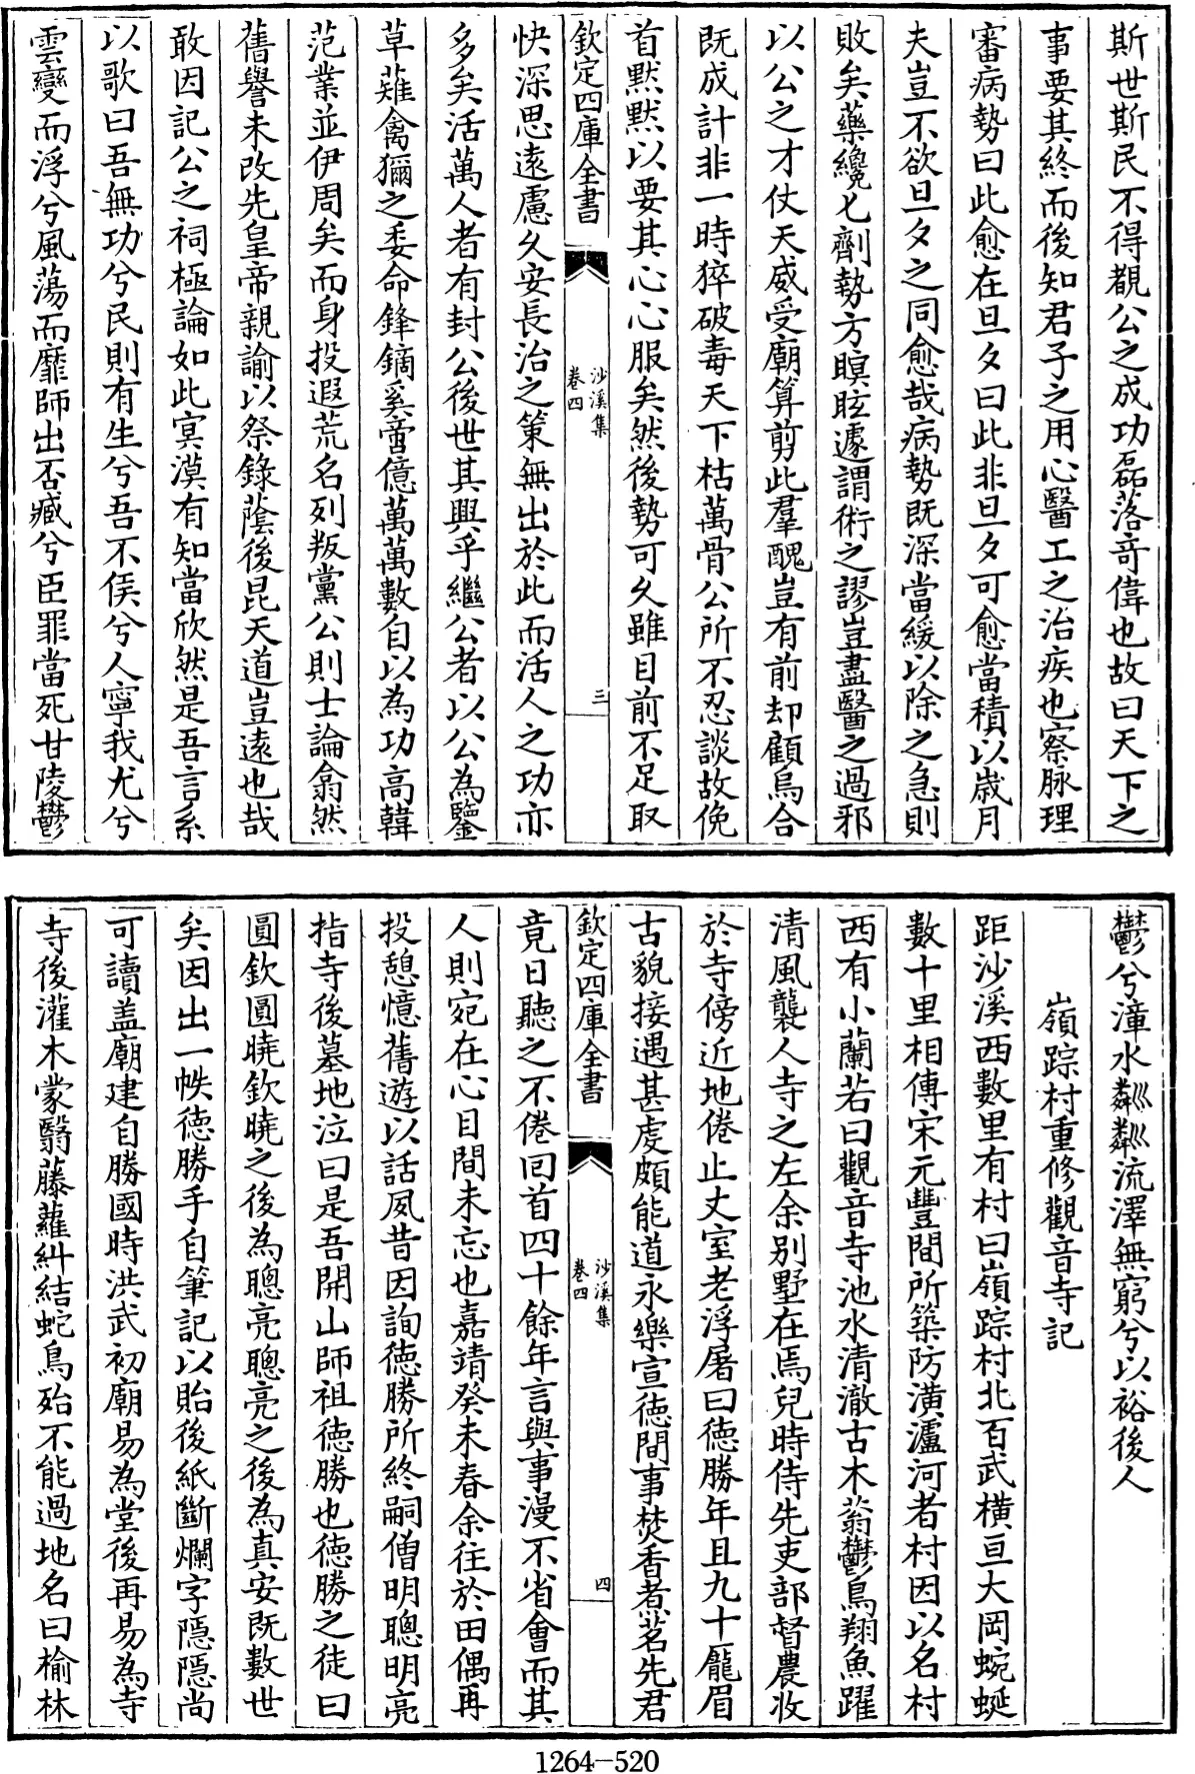 斯世斯民不得覩公之成功磊落奇偉也故曰天下之
事要其終而後知君子之用心醫工之治疾也察脉理
審病勢曰此愈在旦夕曰此非旦夕可愈當積以歲月
夫豈不欲旦夕之同愈哉病勢既深當緩以除之急則
敗矣藥纔匕劑勢方瞑眩遽謂術之謬豈盡醫之過邪
以公之才仗天威受廟算剪此羣醜豈有前却顧烏合
既成計非一時猝破毒天下枯萬骨公所不忍談故俛
首黙黙以要其心心服矣然後勢可久雖目前不足取
欽定四庫全書
沙溪集
卷四
三
快深思遠慮久安長治之策無出於此而活人之功亦
多矣活萬人者有封公後世其興乎繼公者以公為鑒
草薙禽獮之委命鋒鏑奚啻億萬萬數自以為功高韓
范業並伊周矣而身投遐荒名列叛黨公則士論翕然
舊譽未改先皇帝親諭以祭錄蔭後昆天道豈遠也哉
敢因記公之祠極論如此冥漠有知當欣然是吾言系
以歌曰吾無功兮民則有生兮吾不侯兮人寧我尤兮
雲變而浮兮風蕩而靡師出否臧兮臣罪當死甘陵鬱
鬱兮漳水粼粼流澤無窮兮以裕後人
嶺踪村重修觀音寺記
距沙溪西數里有村曰嶺踪村北百武橫亘大岡蜿蜒
數十里相傳宋元豐間所築防潢瀘河者村因以名村
西有小蘭若曰觀音寺池水清澈古木蓊鬱鳥翔魚躍
清風襲人寺之左余别墅在焉兒時侍先吏部督農收
於寺傍近地倦止丈室老浮屠曰德勝年且九十厖眉
古貌接遇甚虔頗能道永樂宣德間事焚香煮茗先君
欽定四庫全書
沙溪集
卷四
四
竟日聽之不倦囘首四十餘年言與事漫不省會而其
人則宛在心目間未忘也嘉靖癸未春余往於田偶再
投憩憶舊遊以話夙昔因詢德勝所終嗣僧明聰明亮
指寺後墓地泣曰是吾開山師祖德勝也德勝之徒曰
圓欽圓曉欽曉之後為聰亮聰亮之後為真安既數世
矣因出一帙德勝手自筆記以貽後紙斷爛字隱隱尚
可讀盖廟建自勝國時洪武初廟易為堂後再易為寺
寺後灌木蒙翳藤蘿糾結蛇鳥殆不能過地名曰榆林
1264-520